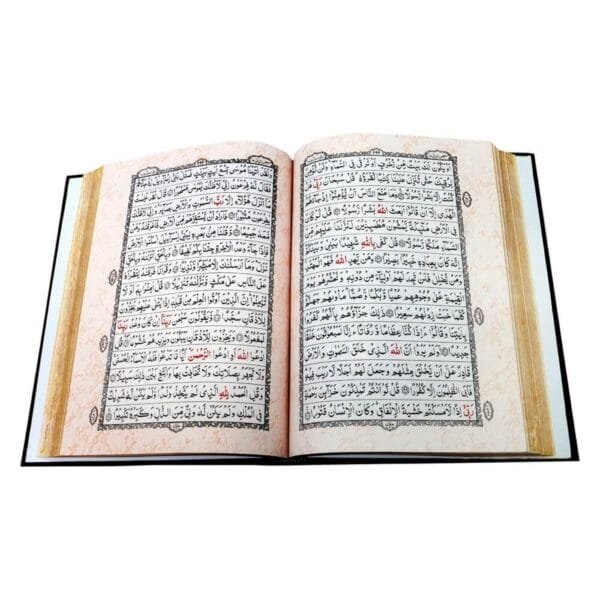 اَوْ يَكُوْنَ لَكَ بَيْتٌ مِّنْ زُخْرُفٍ اَوْ تَرْقٰى فِى السَّمَآءِ وَلَنْ نُّؤْمِنَ
لِرُقِيِّكَ حَتّٰى تُنَزِّلَ عَلَيْنَا كِتٰبًا نَّقْرَؤُهٗ قُلْ سُبْحَانَ رَبِّىْ هَلْ
كُنْتُ اِلَّا بَشَرًا رَّسُوْلًا ۝ وَمَا مَنَعَ النَّاسَ اَنْ يُّؤْمِنُوْٓا اِذْ جَآءَهُمُ
الْهُدٰٓى اِلَّآ اَنْ قَالُوْٓا اَبَعَثَ اللّٰهُ بَشَرًا رَّسُوْلًا ۝ قُلْ لَّوْ كَانَ
فِى الْاَرْضِ مَلٰٓئِكَةٌ يَّمْشُوْنَ مُطْمَئِنِّيْنَ لَنَزَّلْنَا عَلَيْهِمْ
مِّنَ السَّمَآءِ مَلَكًا رَّسُوْلًا ۝ قُلْ كَفٰى بِاللّٰهِ شَهِيْدًۢا بَيْنِىْ وَبَيْنَكُمْ
اِنَّهٗ كَانَ بِعِبَادِهٖ خَبِيْرًۢا بَصِيْرًا ۝ وَمَنْ يَّهْدِ اللّٰهُ فَهُوَ الْمُهْتَدِ
وَمَنْ يُّضْلِلْ فَلَنْ تَجِدَ لَهُمْ اَوْلِيَآءَ مِنْ دُوْنِهٖ وَنَحْشُرُهُمْ يَوْمَ
الْقِيٰمَةِ عَلٰى وُجُوْهِهِمْ عُمْيًا وَّبُكْمًا وَّصُمًّا مَاْوٰىهُمْ جَهَنَّمُ
كُلَّمَا خَبَتْ زِدْنٰهُمْ سَعِيْرًا ۝ ذٰلِكَ جَزَآؤُهُمْ بِاَنَّهُمْ كَفَرُوْا
بِاٰيٰتِنَا وَقَالُوْٓا ءَاِذَا كُنَّا عِظَامًا وَّرُفَاتًا ءَاِنَّا لَمَبْعُوْثُوْنَ خَلْقًا
جَدِيْدًا ۝ اَوَلَمْ يَرَوْا اَنَّ اللّٰهَ الَّذِىْ خَلَقَ السَّمٰوٰتِ وَالْاَرْضَ
قَادِرٌ عَلٰٓى اَنْ يَّخْلُقَ مِثْلَهُمْ وَجَعَلَ لَهُمْ اَجَلًا لَّا رَيْبَ فِيْهِ
فَاَبَى الظّٰلِمُوْنَ اِلَّا كُفُوْرًا ۝ قُلْ لَّوْ اَنْتُمْ تَمْلِكُوْنَ خَزَآئِنَ رَحْمَةِ
رَبِّىْٓ اِذًا لَّاَمْسَكْتُمْ خَشْيَةَ الْاِنْفَاقِ وَكَانَ الْاِنْسَانُ قَتُوْرًا ۝
وَلَقَدْ اٰتَيْنَا مُوْسٰى تِسْعَ اٰيٰتٍۢ بَيِّنٰتٍ فَسْـَٔلْ بَنِىْٓ اِسْرَآءِيْلَ اِذْ جَآءَهُمْ
فَقَالَ لَهٗ فِرْعَوْنُ اِنِّىْ لَاَظُنُّكَ يٰمُوْسٰى مَسْحُوْرًا ۝ قَالَ لَقَدْ عَلِمْتَ
مَآ اَنْزَلَ هٰٓؤُلَآءِ اِلَّا رَبُّ السَّمٰوٰتِ وَالْاَرْضِ بَصَآئِرَ وَاِنِّىْ لَاَظُنُّكَ
يٰفِرْعَوْنُ مَثْبُوْرًا ۝ فَاَرَادَ اَنْ يَّسْتَفِزَّهُمْ مِّنَ الْاَرْضِ فَاَغْرَقْنٰهُ وَمَنْ مَّعَهٗ
جَمِيْعًا ۝ وَّقُلْنَا مِنْۢ بَعْدِهٖ لِبَنِىْٓ اِسْرَآءِيْلَ اسْكُنُوا الْاَرْضَ
فَاِذَا جَآءَ وَعْدُ الْاٰخِرَةِ جِئْنَا بِكُمْ لَفِيْفًا ۝ وَبِالْحَقِّ اَنْزَلْنٰهُ وَبِالْحَقِّ
نَزَلَ وَمَآ اَرْسَلْنٰكَ اِلَّا مُبَشِّرًا وَّنَذِيْرًا ۝ وَقُرْاٰنًا فَرَقْنٰهُ لِتَقْرَاَهٗ
عَلَى النَّاسِ عَلٰى مُكْثٍ وَّنَزَّلْنٰهُ تَنْزِيْلًا ۝ قُلْ اٰمِنُوْا بِهٖٓ اَوْ لَا
تُؤْمِنُوْا اِنَّ الَّذِيْنَ اُوْتُوا الْعِلْمَ مِنْ قَبْلِهٖٓ اِذَا يُتْلٰى عَلَيْهِمْ يَخِرُّوْنَ
لِلْاَذْقَانِ سُجَّدًا ۝ وَّيَقُوْلُوْنَ سُبْحٰنَ رَبِّنَآ اِنْ كَانَ وَعْدُ رَبِّنَا
لَمَفْعُوْلًا ۝ وَيَخِرُّوْنَ لِلْاَذْقَانِ يَبْكُوْنَ وَيَزِيْدُهُمْ خُشُوْعًا ۝ قُلِ
ادْعُوا اللّٰهَ اَوِ ادْعُوا الرَّحْمٰنَ اَيًّا مَّا تَدْعُوْا فَلَهُ الْاَسْمَآءُ الْحُسْنٰى
وَلَا تَجْهَرْ بِصَلَاتِكَ وَلَا تُخَافِتْ بِهَا وَابْتَغِ بَيْنَ ذٰلِكَ سَبِيْلًا ۝
وَقُلِ الْحَمْدُ لِلّٰهِ الَّذِىْ لَمْ يَتَّخِذْ وَلَدًا وَّلَمْ يَكُنْ لَّهٗ شَرِيْكٌ
فِى الْمُلْكِ وَلَمْ يَكُنْ لَّهٗ وَلِىٌّ مِّنَ الذُّلِّ وَكَبِّرْهُ تَكْبِيْرًا ۝